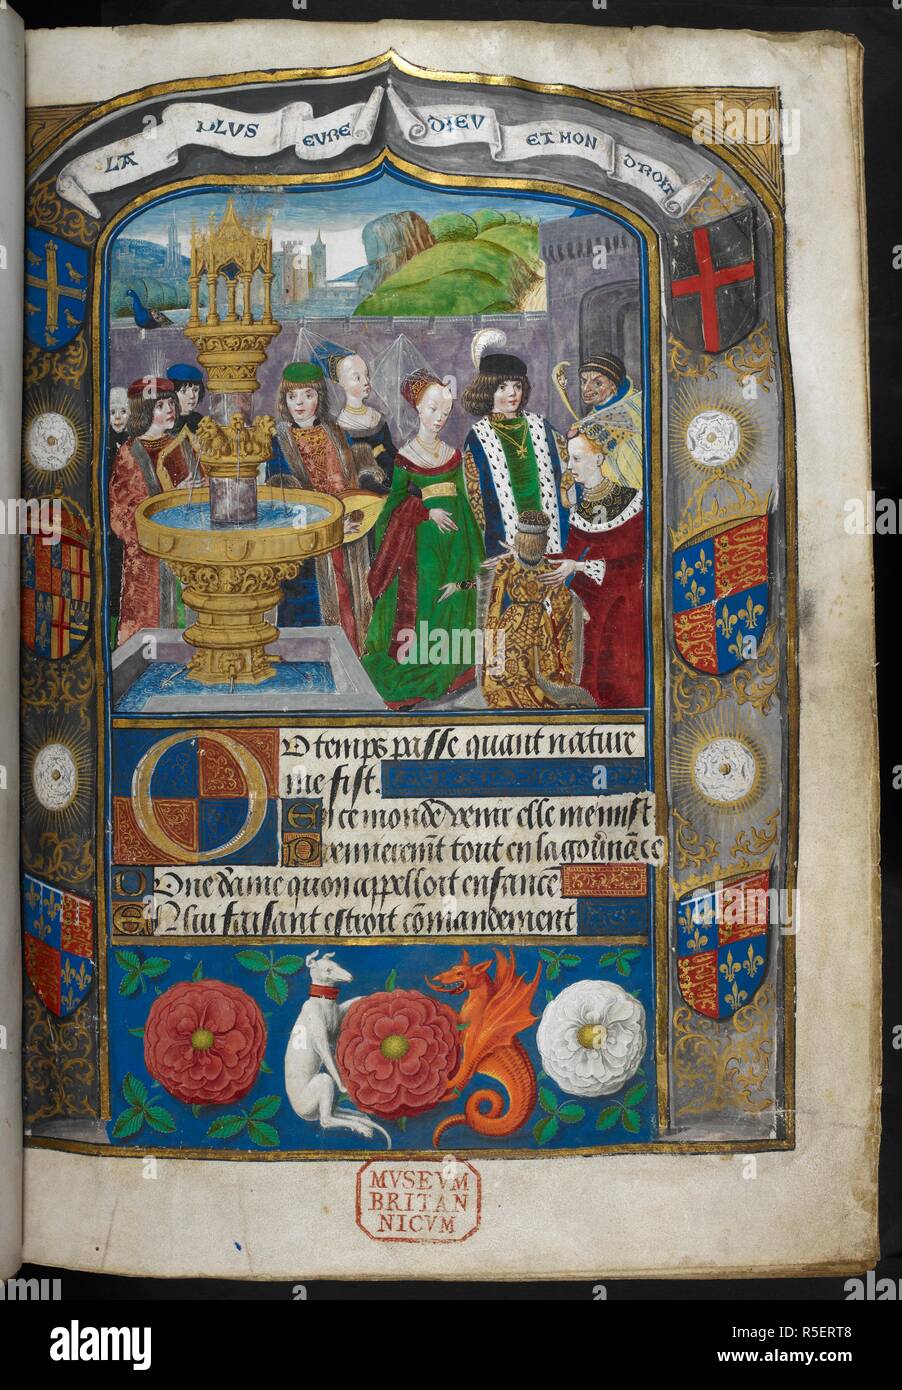 LA PLUS EURE DIEU ET MON DROIT
U temps passe quant nature
me fist.
En ce monde venir elle me mist
Premierement tout en la gouvernance
Dune dame quon appelloit enfance
En lui faisant estroit commandement
MVSEVM
BRITAN
NICVM
alamy
Image ID: R5ERT8
www.alamy.com